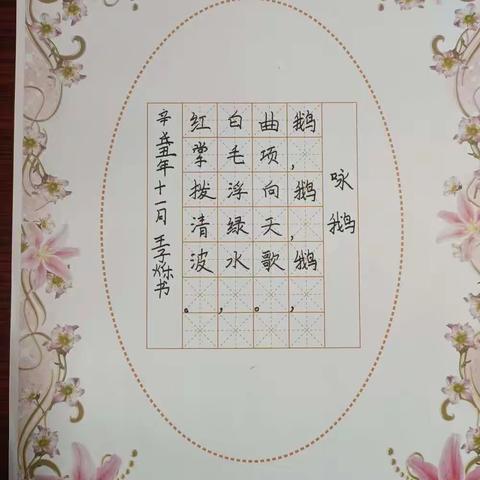 咏鹅
鹅，鹅，鹅，
曲项向天歌。
白毛浮绿水，
红掌拨清波。
辛丑年十一月 王子烁书